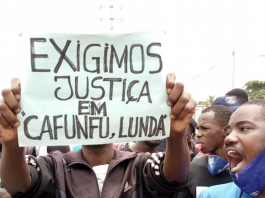 EXIGIMOS
JUSTIÇA
EM
'CAFUNFU, LUNDA'